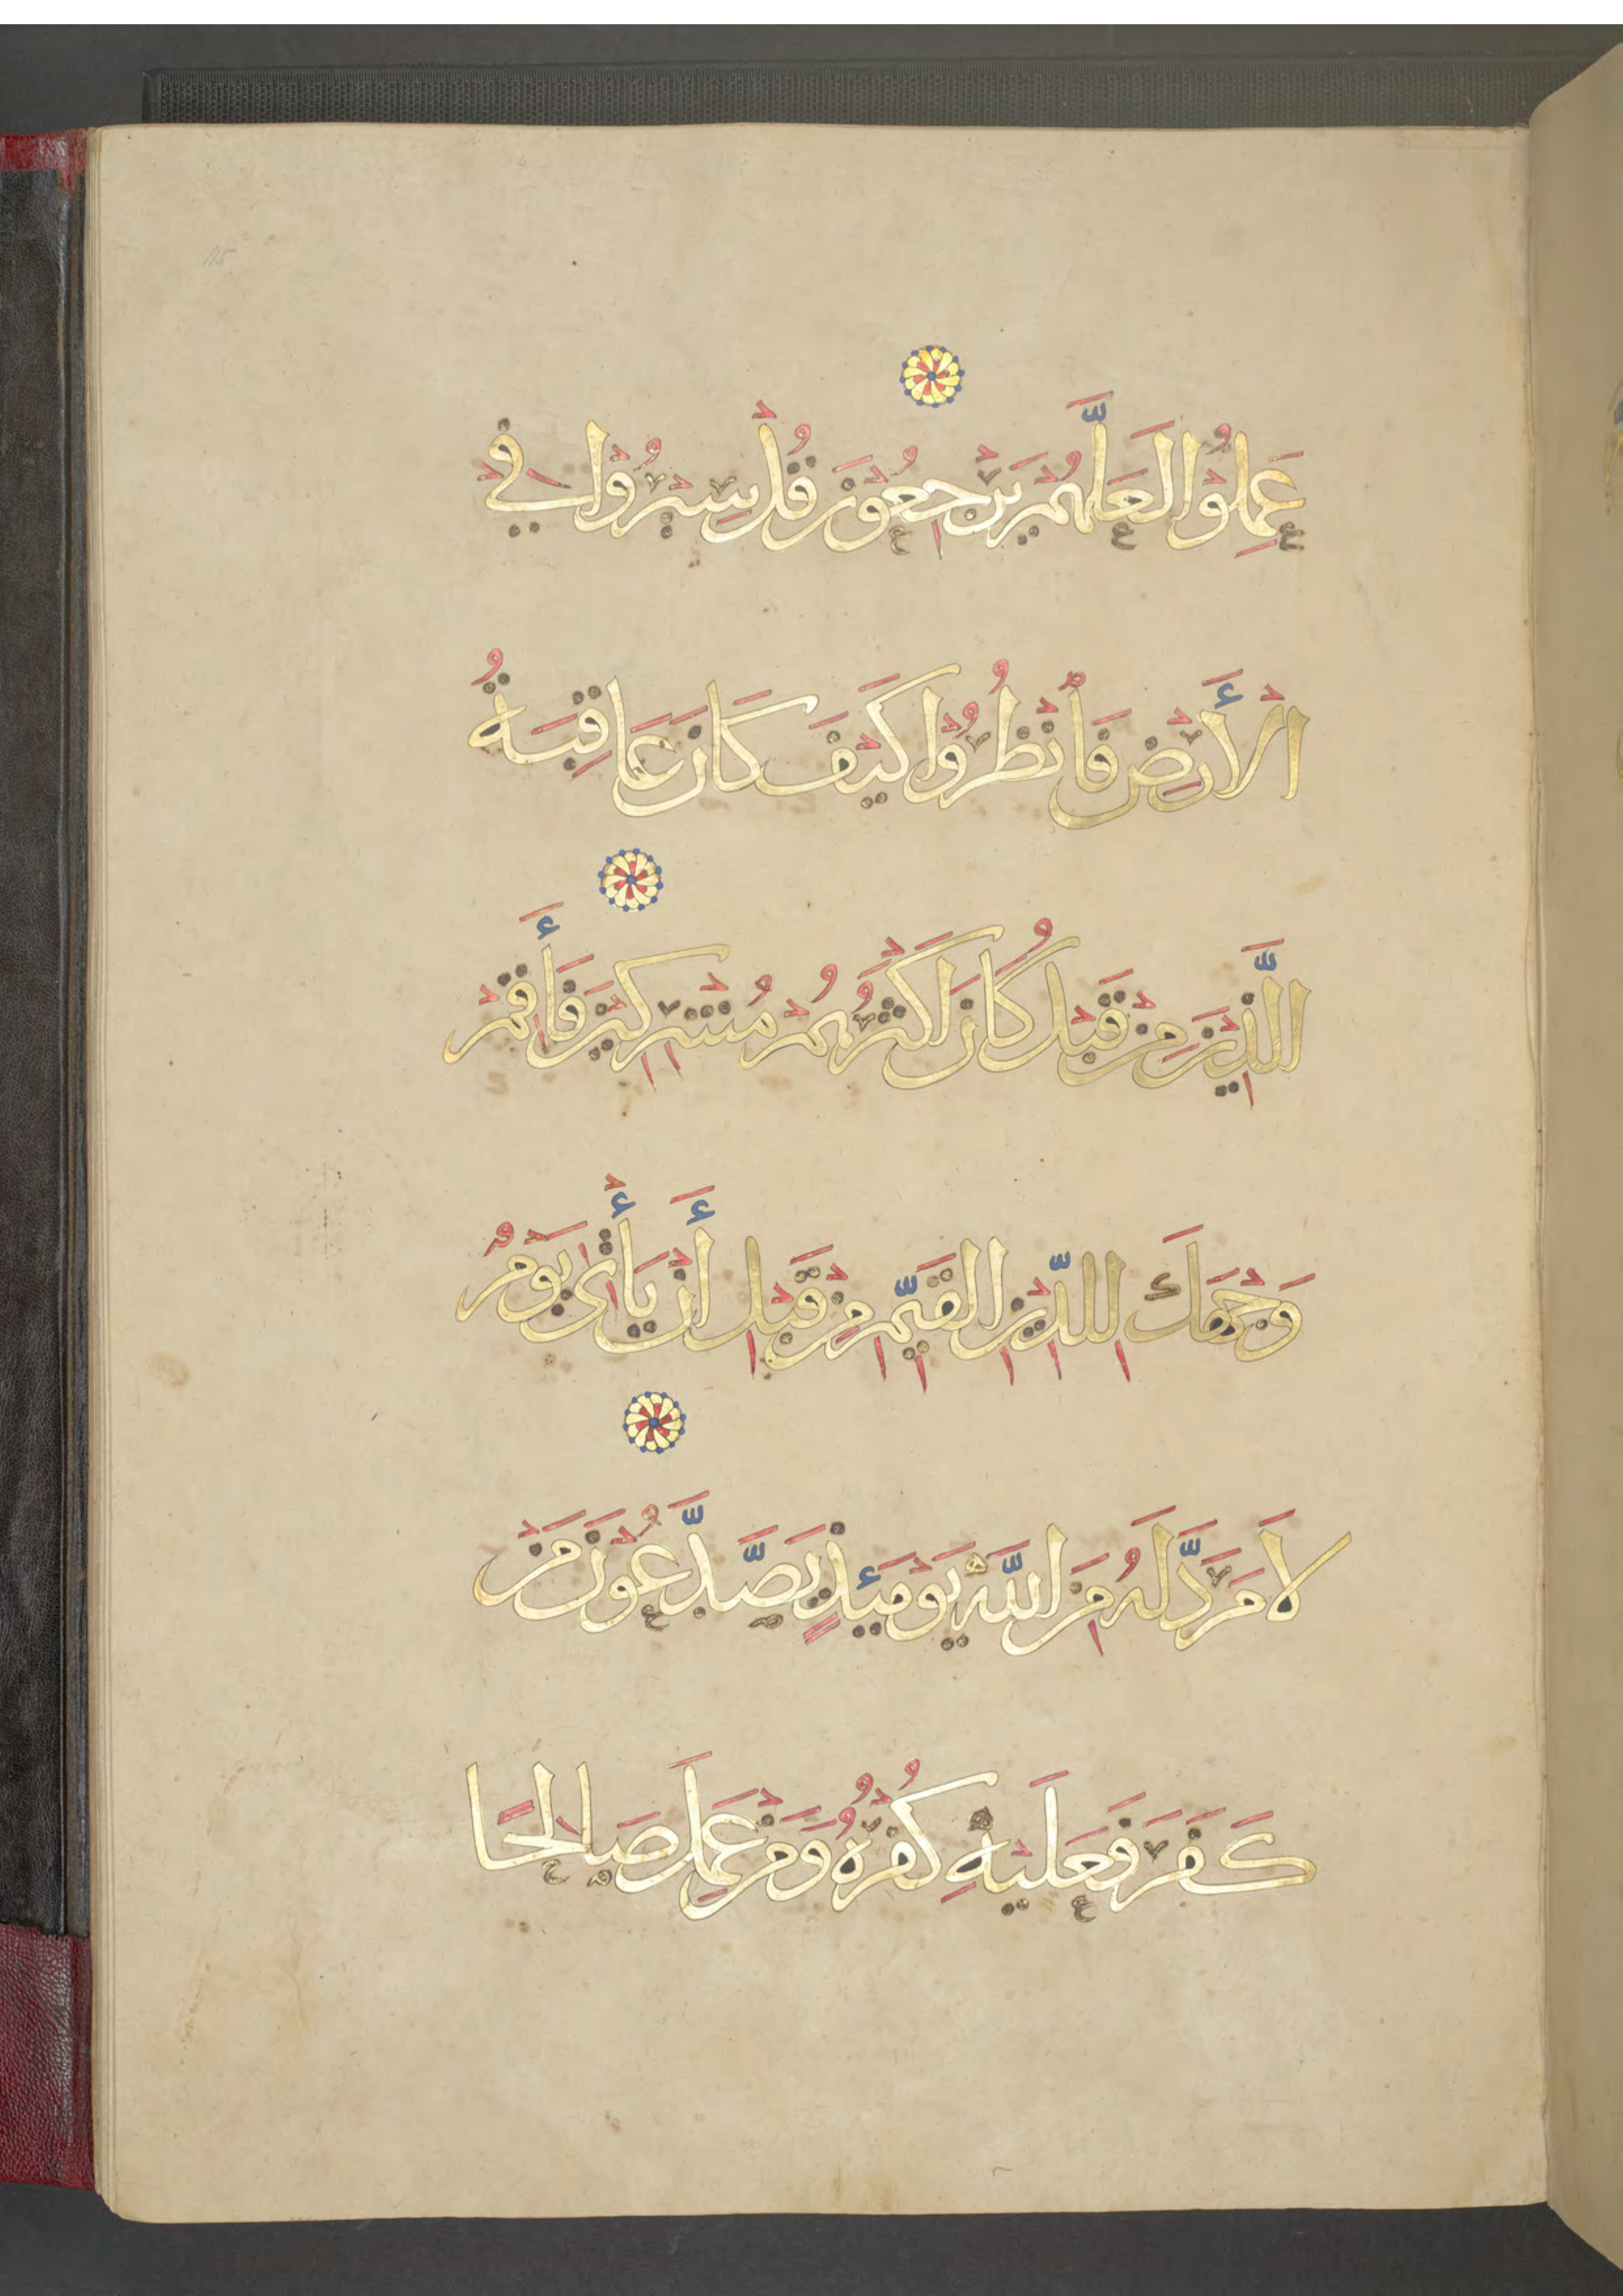 عَمِلُوْا لَعَلَّهُمْ يَرْجِعُوْنَ قُلْ سِيْرُوْا فِيْ
الْأَرْضِ فَاُنْظُرُوْا كَيْفَ كَانَ عَاقِبَةُ
الَّذِيْنَ مِنْ قَبْلُ كَانَ اَكْثَرُهُمْ مُشْرِكِيْنَ فَأَقِمْ
وَجْهَكَ لِلدِّيْنِ الْقَيِّمِ مِنْ قَبْلِ أَنْ يَأْتِىَ يَوْمٌ
لَا مَرَدَّ لَهُ مِنَ اللَّهِ يَوْمَئِذٍ يَصَّدَّعُوْنَ مَنْ
كَفَرَ فَعَلَيْهِ كُفْرُهُ وَمَنْ عَمِلَ صَالِحًا